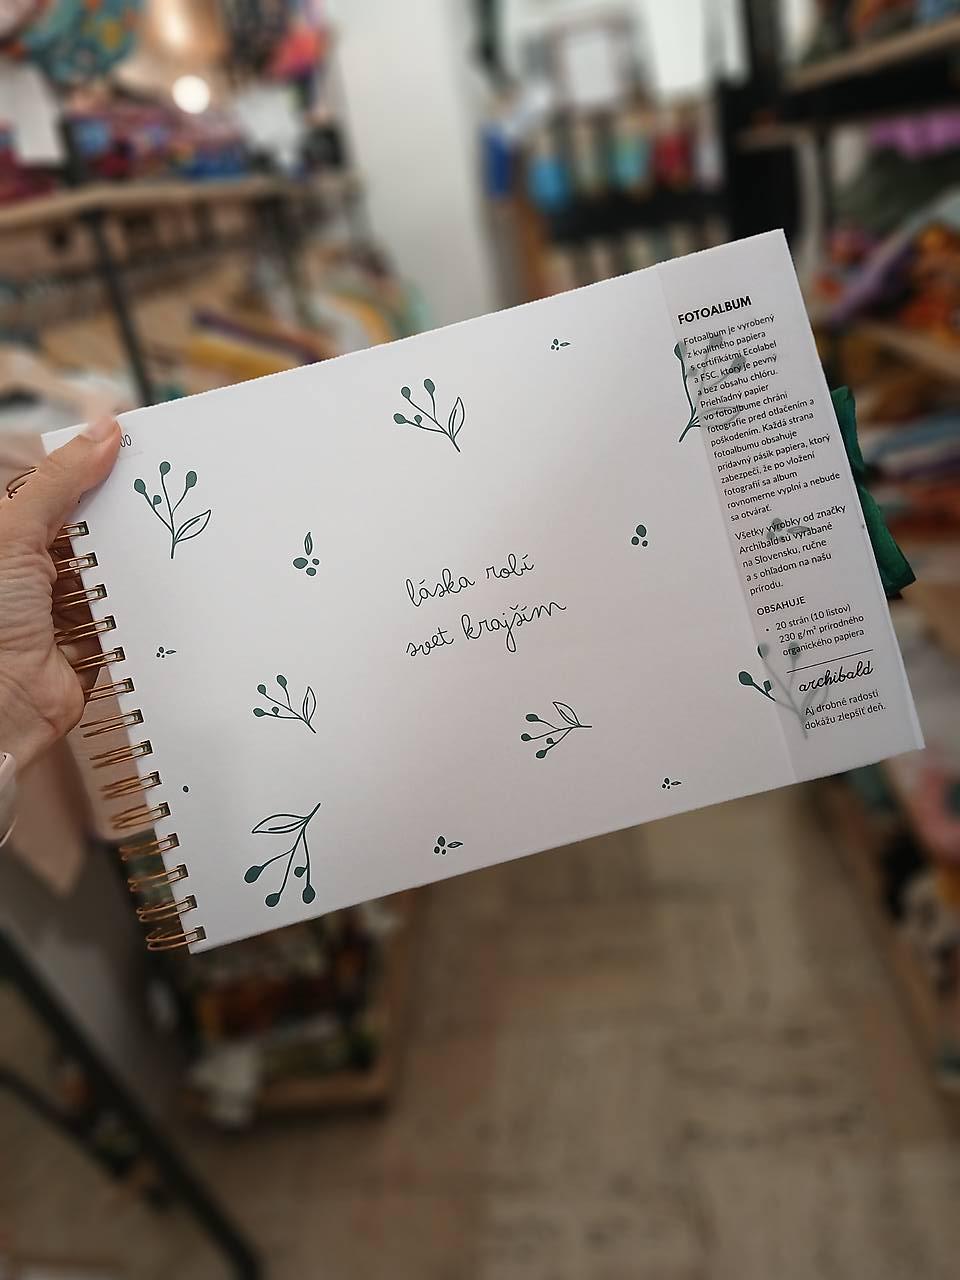 láska robí
svet krajším
FOTOALBUM
Fotoalbum je vyrobený
z kvalitného papiera
s certifikátmi Ecolabel
a FSC, ktorý je pevný
a bez obsahu chlóru.
Priehľadný papier
vo fotoalbume chráni
fotografie pred otlačením a
poškodením. Každá strana
fotoalbumu obsahuje
prídavný pásik papiera, ktorý
zabezpečí, že po vložení
fotografií sa album
rovnomerne vyplní a nebude
sa otvárať.
Všetky výrobky od značky
Archibald sú vyrábané
na Slovensku, ručne
a s ohľadom na našu
prírodu.
OBSAHUJE
• 20 strán (10 listov)
230 g/m² prírodného
organického papiera
archibald
Aj drobné radosti
dokážu zlepšiť deň.